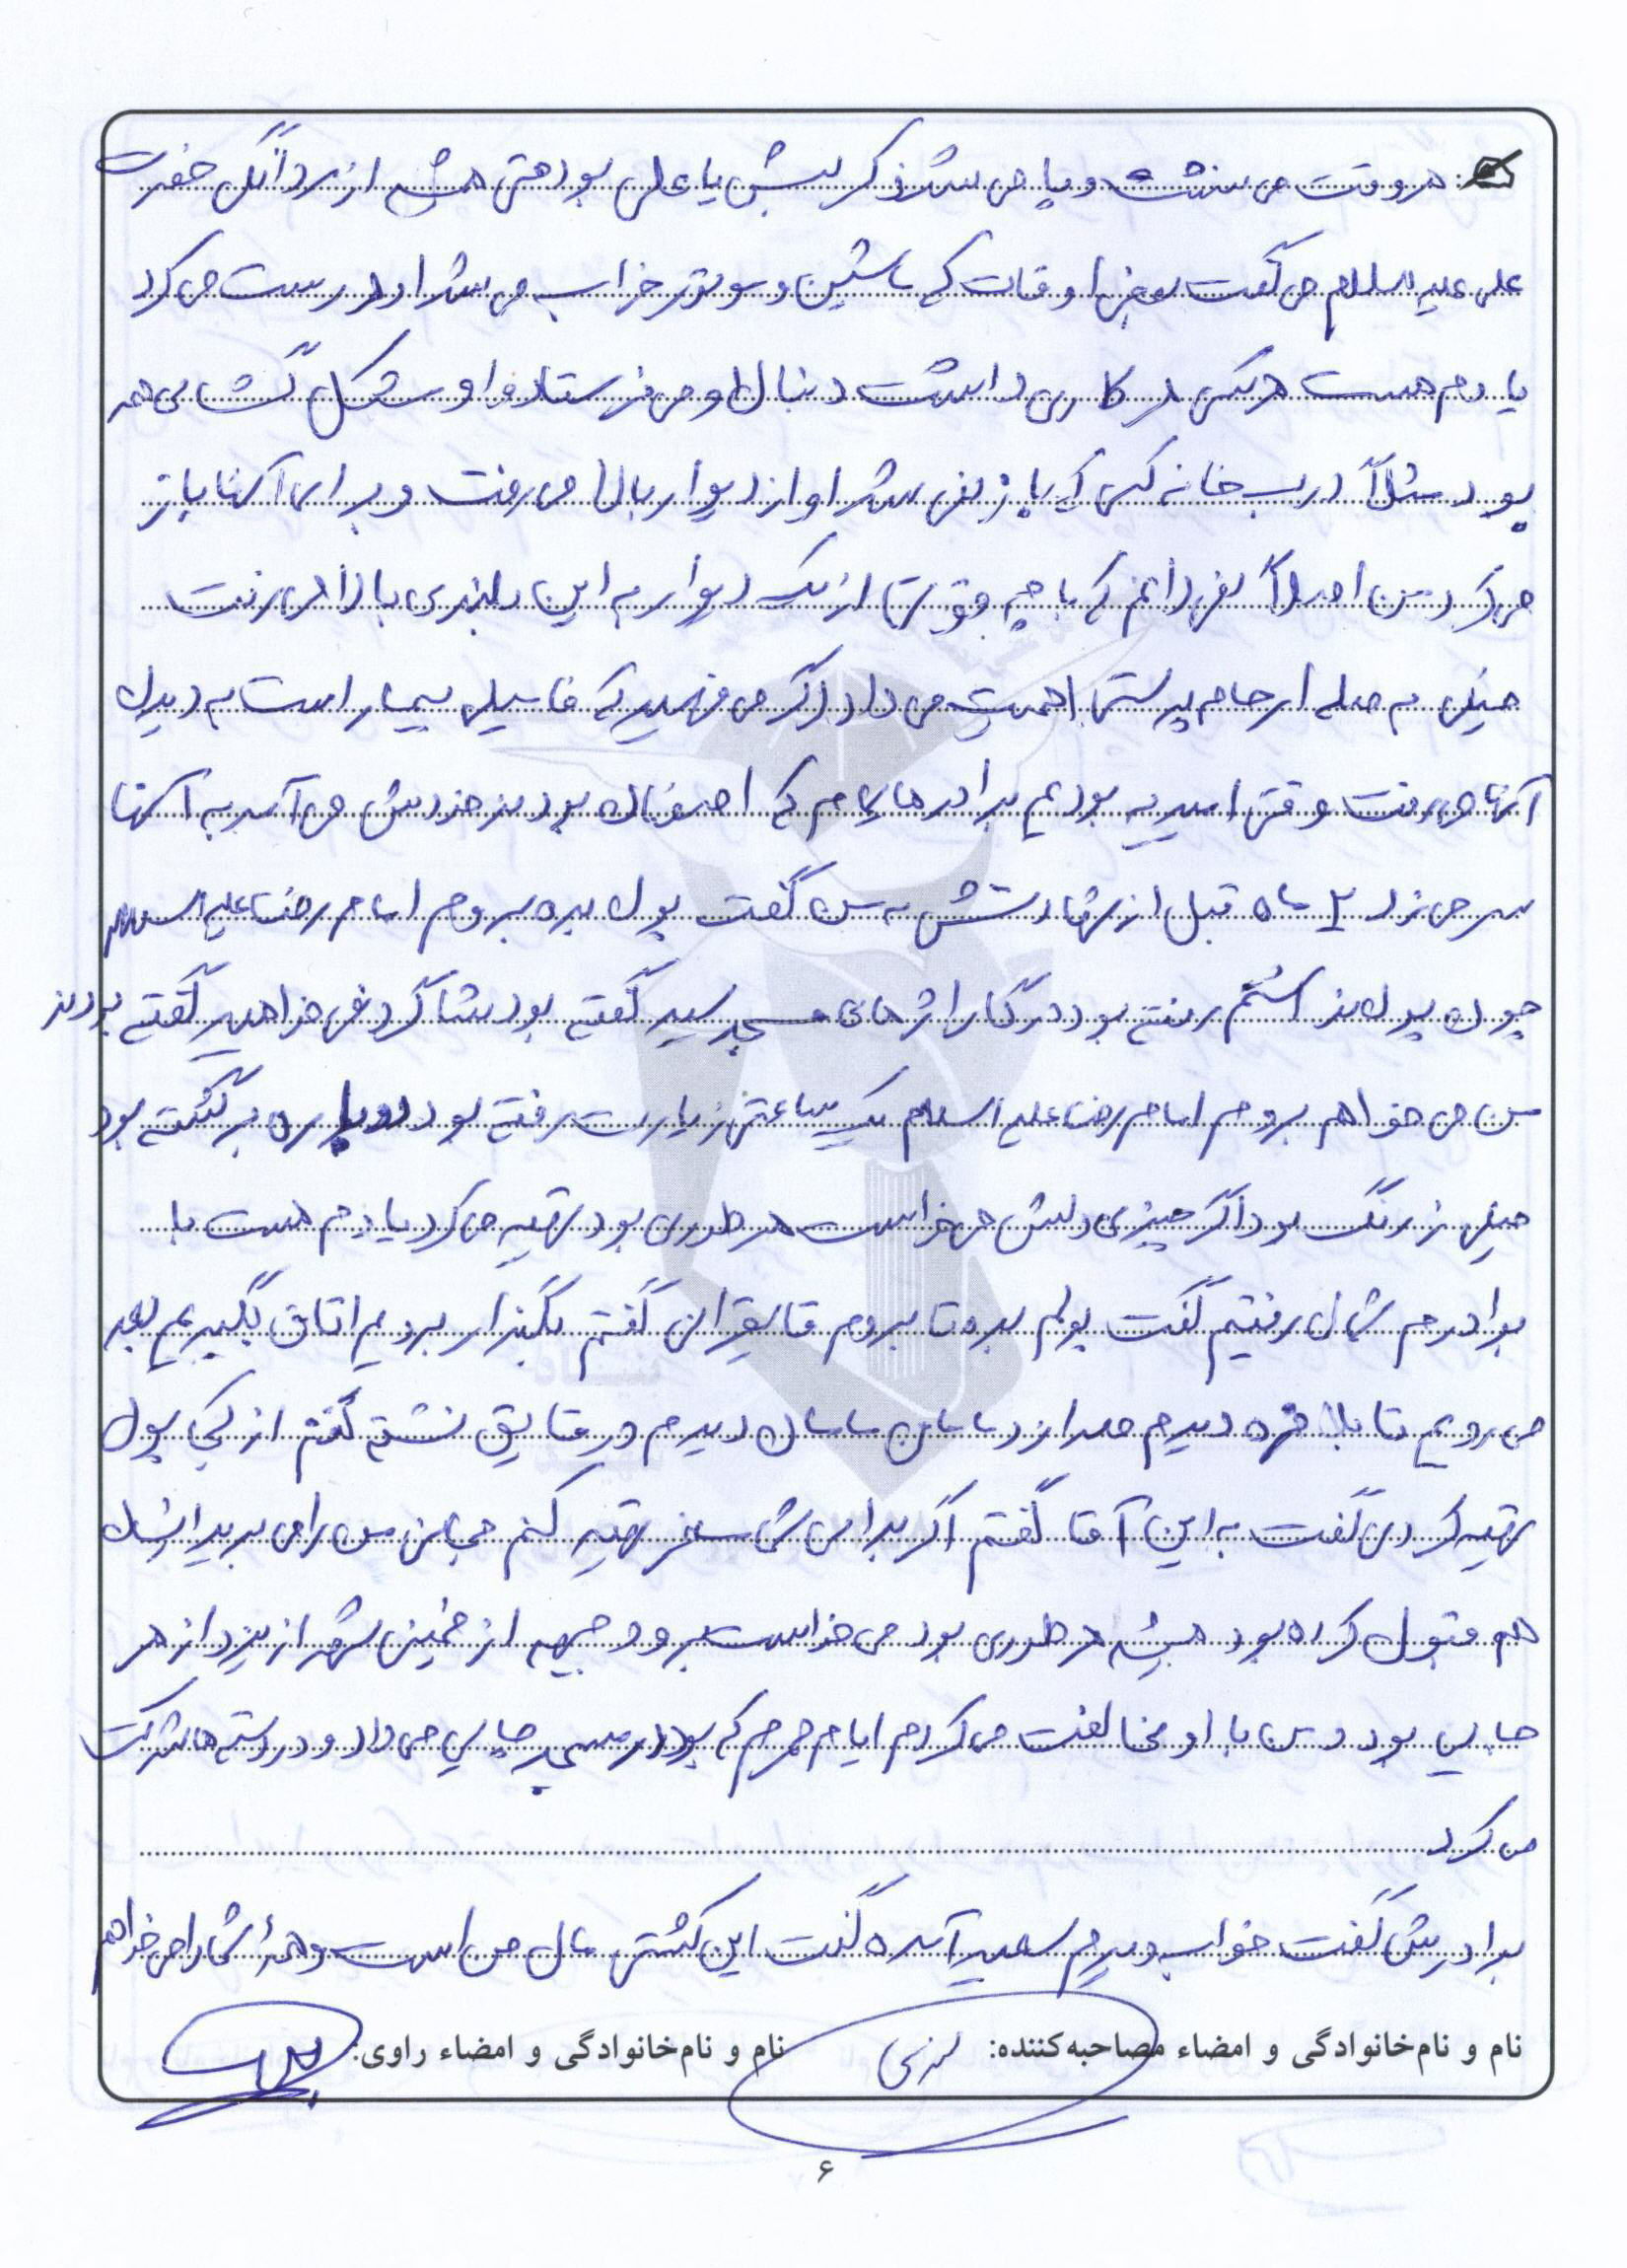 هر وقت می نشست و پا می شد ذکر لبش یا علی بود حتی همیشه از حضرت
علی علیه السلام می گفت بعضی اوقات که ماشین و موتور خراب می شد او درست می کرد
یادم هست هر کس هر کاری داشت دنبال او می فرستاد و او مشکل گشای همه
بود مثلاً درب خانه کسی که باز نمی شد او از دیوار بالا می رفت و برای آنها باز
می کرد من اصلاً نمی دانم که با چه قوتی از یک دیوار به این بلندی بالا می رفت
خیلی به صله ارحام پرستی اهمیت می داد اگر می فهمید که فامیلی بیمار است به دیدن
آنها می رفت وقتی اسیریه بودیم برادرهایم که اصفهان بودند خودش می آمد به آنها
سر می زد ۲ ماه قبل از شهادتش به من گفت پول بده بروم امام رضا علیه السلام
چون پول نداشتم رفته بود در گاراژهای مسجد سید گفته بود شاگرد نمی خواهید گفته بودند
من می خواهم بروم امام رضا علیه السلام یک ساعتی زیارت رفته بود دوباره برگشته بود
خیلی زرنگ بود اگر چیزی دلش می خواست هر طوری بود تهیه می کرد یادم هست با
برادرم شمال رفتیم گفت پولم بده تا بروم قایقرانی گفتم بگذار برویم اتاق بگیریم بعد
می رویم تا بالاخره دیدم صدا زد مامان مامان دیدم در قایق نشسته گفتم از کجا پول
تهیه کردی گفت به این آقا گفتم اگر برای شما مسافر تهیه کنم مجانی من را می برید ایشان
هم قبول کرده بود همیشه هر طوری بود می خواست برود جبهه از خمینی شهر از یزد از هر
جایی بود و من با او مخالفت می کردم ایام محرم که بود در مسجد چایی می داد و در دسته ها شرکت
می کرد
برادرش گفت خواب دیدم سعید آمده گفت این کشتی مال من است و همهٔ شما را می خواهم
نام و نام‌خانوادگی و امضاء مصاحبه‌کننده: نام و نام‌خانوادگی و امضاء راوی:
۶